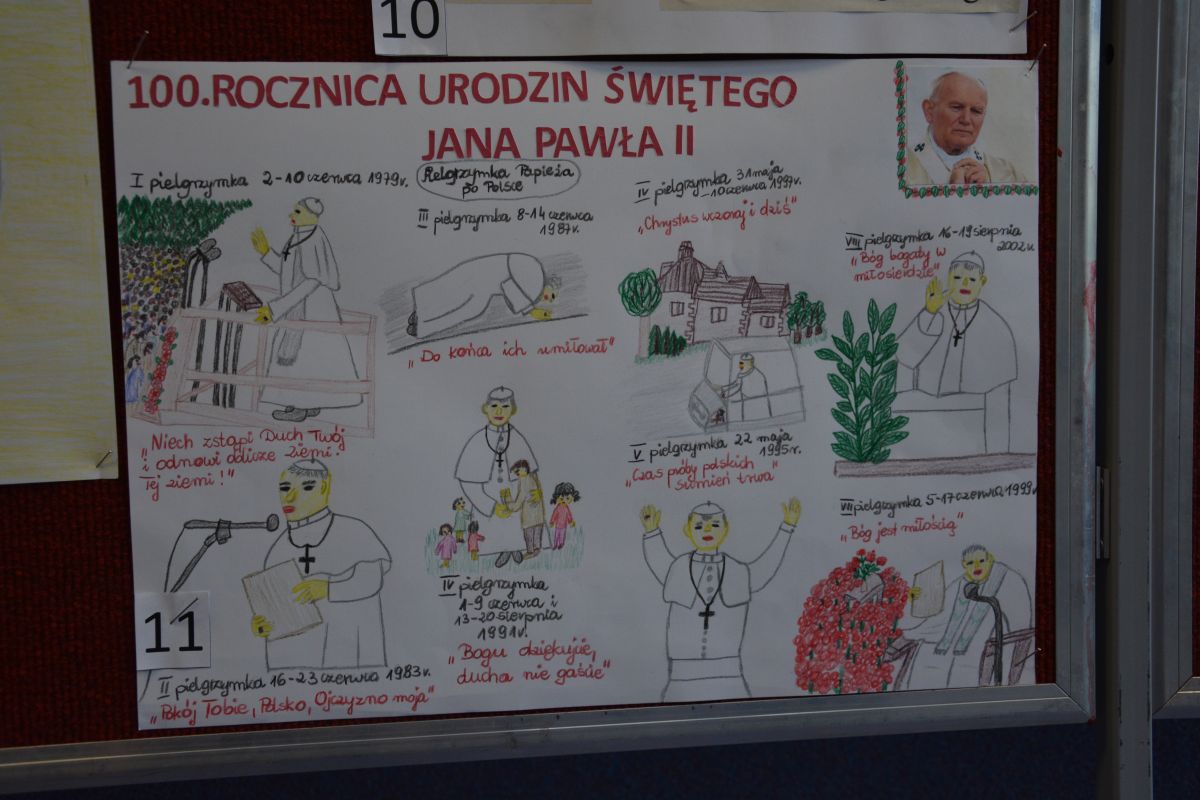 10
100.ROCZNICA URODZIN ŚWIĘTEGO
JANA PAWŁA II
Pielgrzymka Papieża
po Polsce
I pielgrzymka 2-10 czerwca 1979r.
"Niech zstąpi Duch Twój
i odnowi oblicze ziemi.
Tej ziemi!"
11
II pielgrzymka 16-23 czerwca 1983r.
"Pokój Tobie, Polsko, Ojczyzno moja"
III pielgrzymka 8-14 czerwca
1987r.
"Do końca ich umiłował"
IV pielgrzymka
1-9 czerwca i
13-20 sierpnia
1991r.
"Bogu dziękujcie,
ducha nie gaście"
IV pielgrzymka 31 maja
-10 czerwca 1997r.
"Chrystus wczoraj i dziś"
V pielgrzymka 22 maja
1995r.
"Czas próby polskich
sumień trwa"
VIII pielgrzymka 16-19 sierpnia
2002r.
"Bóg bogaty w
miłosierdzie"
VII pielgrzymka 5-17 czerwca 1999r.
"Bóg jest miłością"